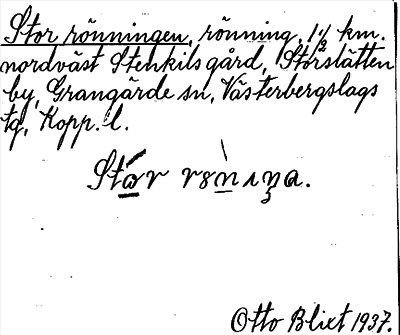 Stor rönningen, rönning, 1½ km.
nordväst Stenkils gård, Storslätten
by, Grangärde sn, Västerbergslags
tg, Kopp. l.
Stár rȣ̀nıŋa.
Otto Blixt 1937.